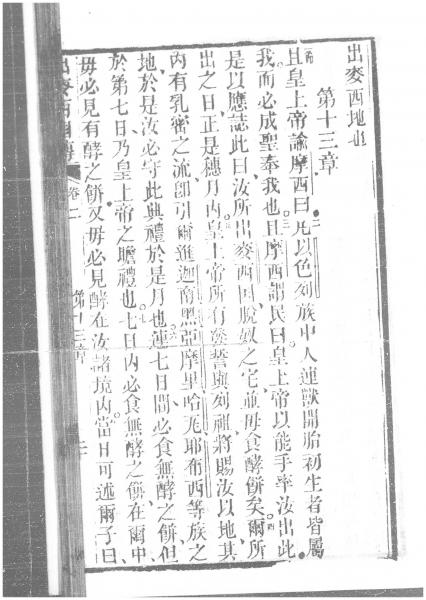 出麥西地也
第十三章
且皇上帝諭摩西曰凡以色列族中人連獸開胎初生者皆屬
我而必成聖奉我也且摩西謂民曰皇上帝以能手率汝出此
是以應誌此日汝所出麥西國脫奴之宅並毋食酵餅矣爾所
出之日正是穗月內皇上帝所有發誓與列祖將賜汝以地其
內有乳蜜之流卽引爾進迦南黑亞摩里哈兆耶布西等族之
地於是汝必守此典禮於是月也連七日間必食無酵之餅但
於第七日乃皇上帝之瞻禮也七日內必食無酵之餅在爾中
毋必見有酵之餅又毋必見酵在汝諸境內當日可述爾子曰
出麥西國傳 卷二 第十三章 二